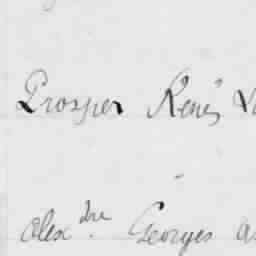 Prosper René,
Alexdre. Georges